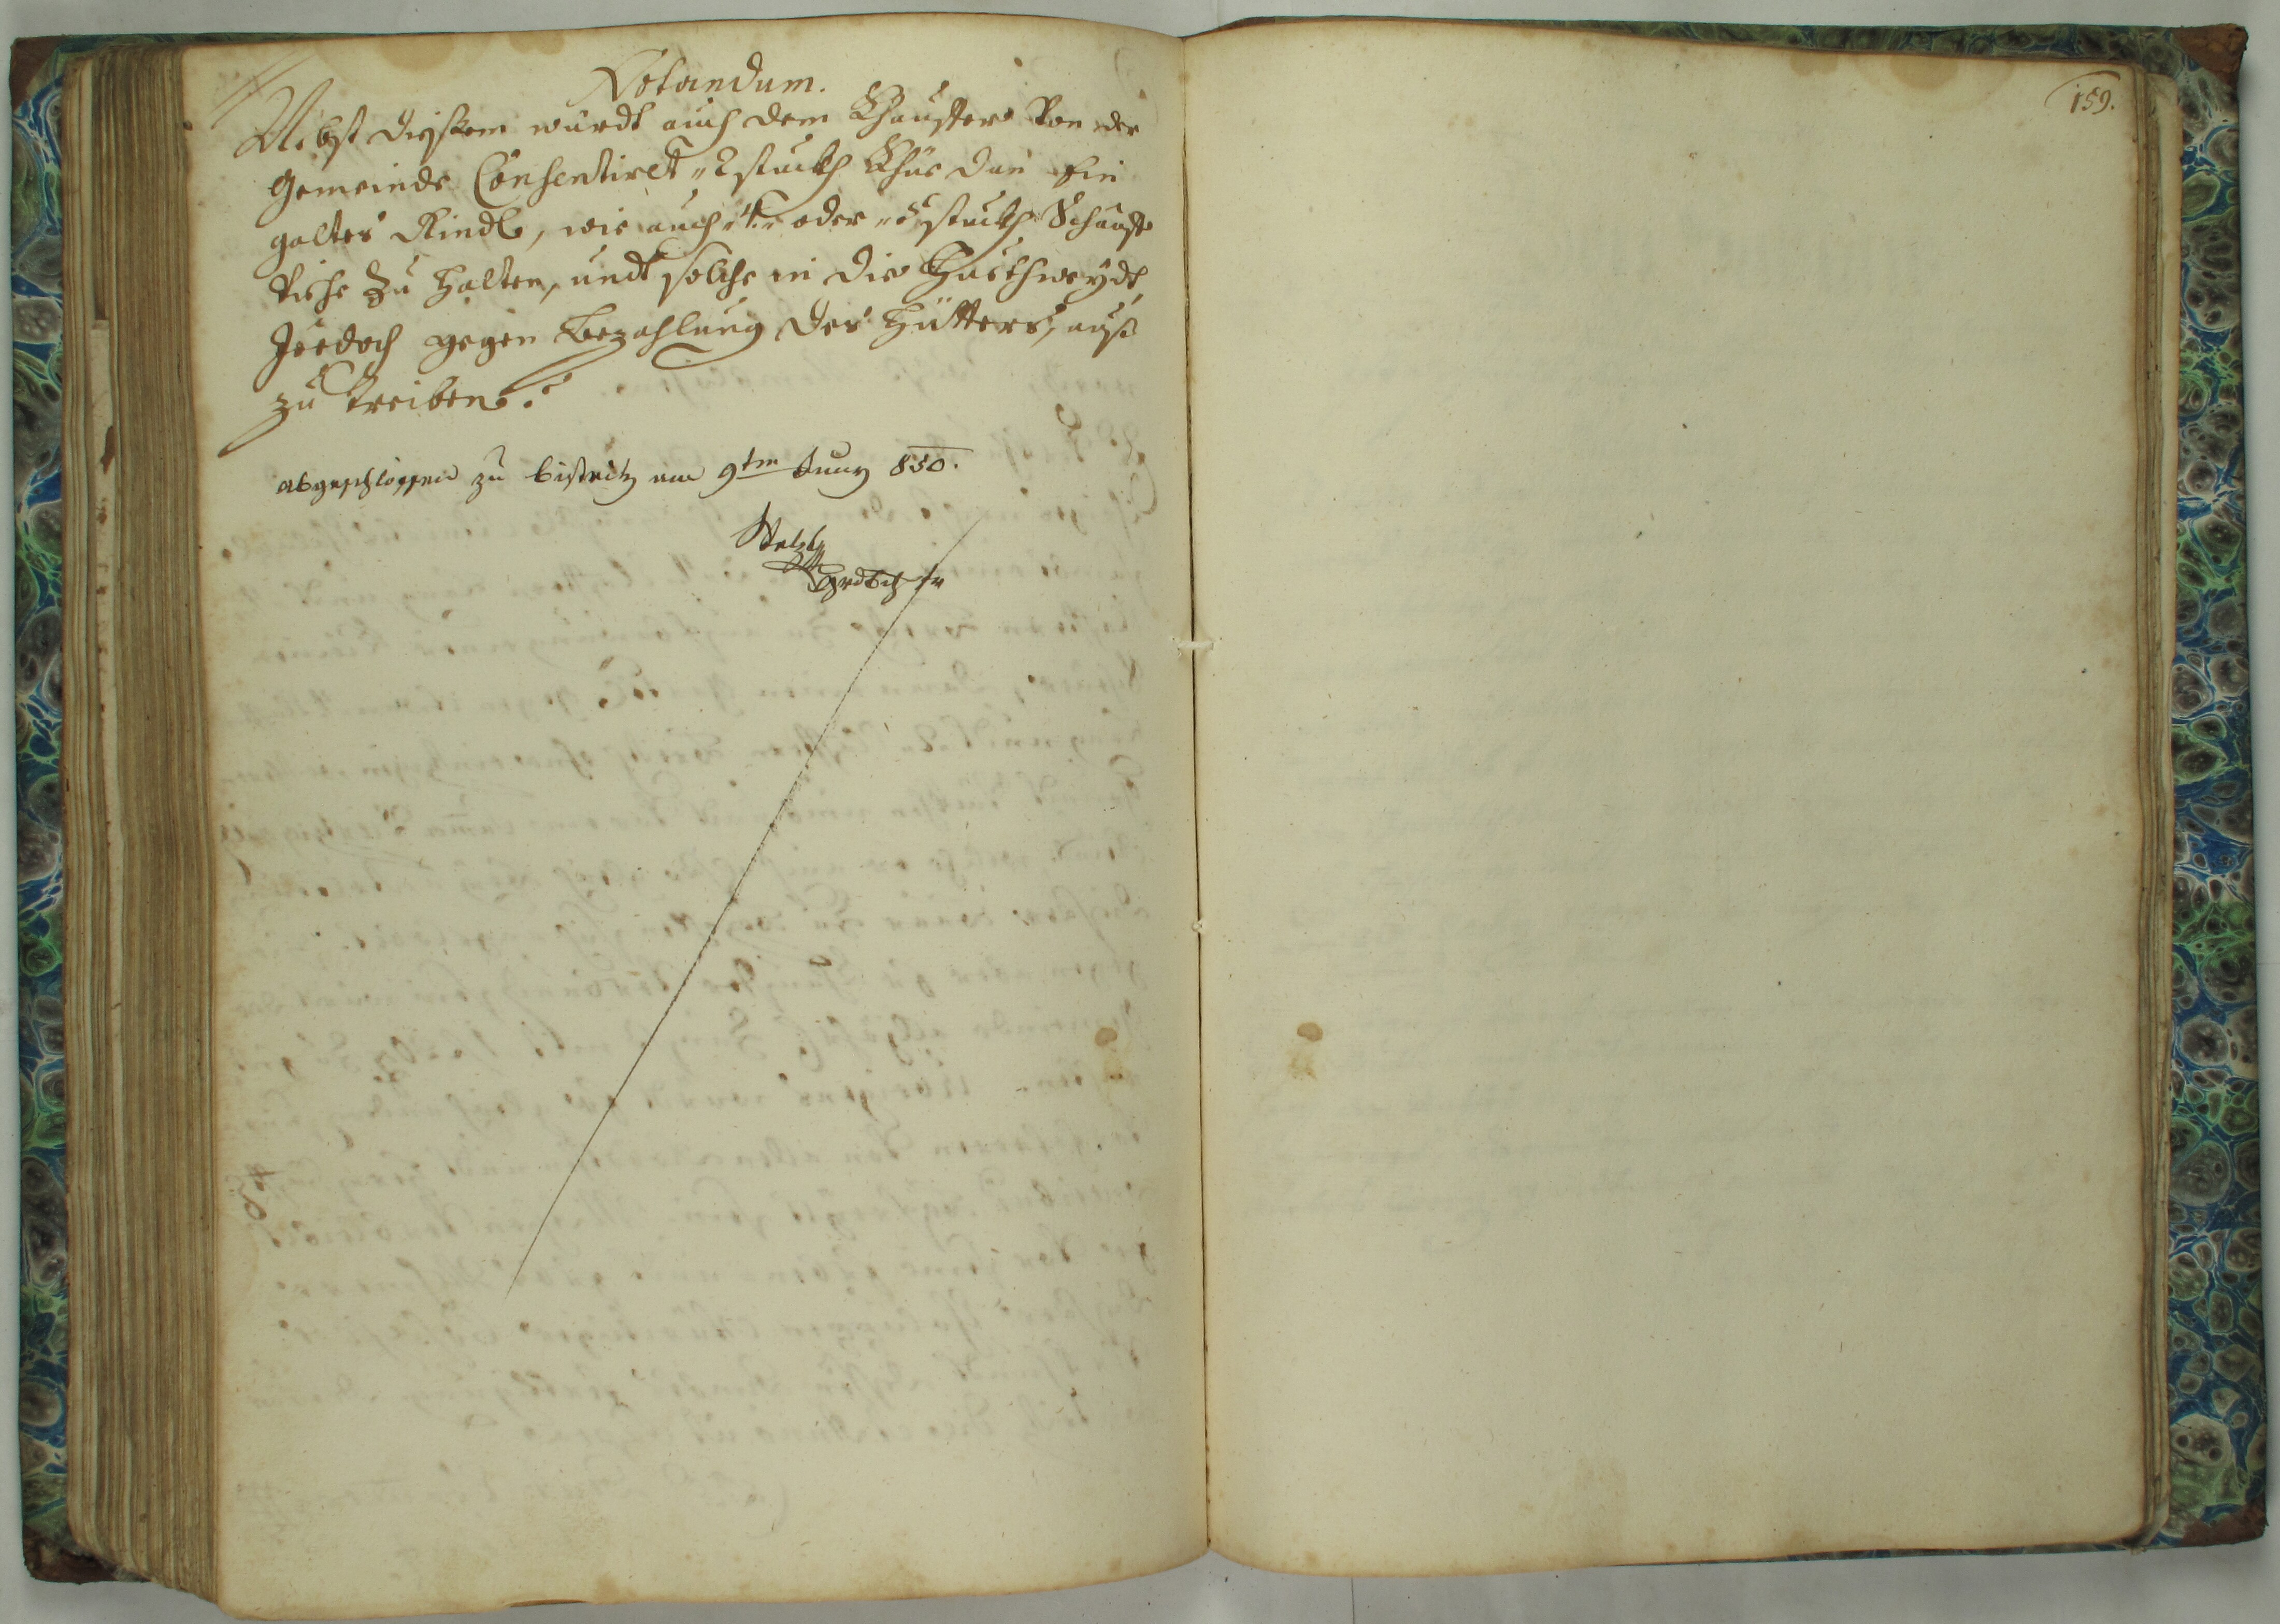 Notandum.
Nebst dießem wurdt auch dem Khauffer Von der
Gemeinde Consentiret, 2 stuckh Khüe dan Ein
galtes Rindl, wie auch 4. oder 5 stuckh Schaaff
Viehe Zu Halten, undt solche in die Huethweydt
Jeedoch gegen Bezahlung des Hütters, auß
zu treiben.
abgeschlossen zu bistritz am 9ten Juny 850.
159.